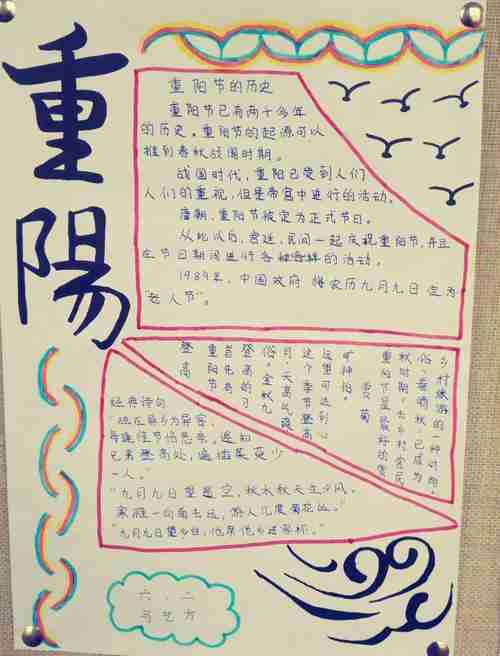 重陽
重阳节的历史
重阳节已有两千多年
的历史。重阳节的起源可以
推到春秋战国时期。
战国时代,重阳已受到人们
人们的重视,但是帝宫中进行的活动。
唐朝,重阳节被定为正式节日。
从此以后,宫廷、民间一起庆祝重阳节,并且
在节日期间进行各种各样的活动。
1989年,中国政府将农历九月九日定为
“老人节”。
登高
重阳节
首先
登高的习
俗。金秋九
月,天高气爽
这个季节登高
远望可达到心
旷神怡
赏菊
重阳节是最好的赏
秋时期,去乡村赏民
俗、看晴秋,已成为
乡村旅游的一种时尚。
经典诗句
“独在异乡为异客,
每逢佳节倍思亲。遥知
兄弟登高处,遍插茱萸少
一人。”
“九月九日望遥空,秋水秋天生夕风。
寒雁一向南去远,游人几度菊花丛。”
“九月九日望乡台,他席他乡送客杯。”
六.二
马艺方